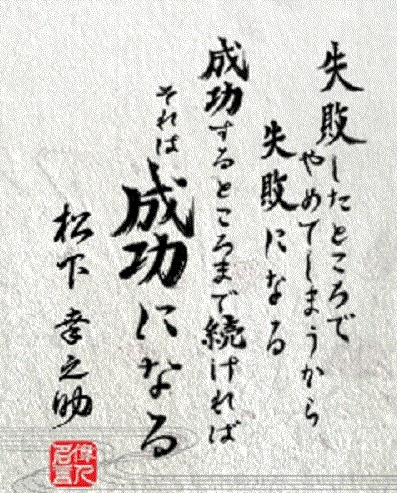 失敗したところで
やめてしまうから
失敗になる
成功するところまで続ければ
それは
成功になる
松下幸之助
偉人
名言